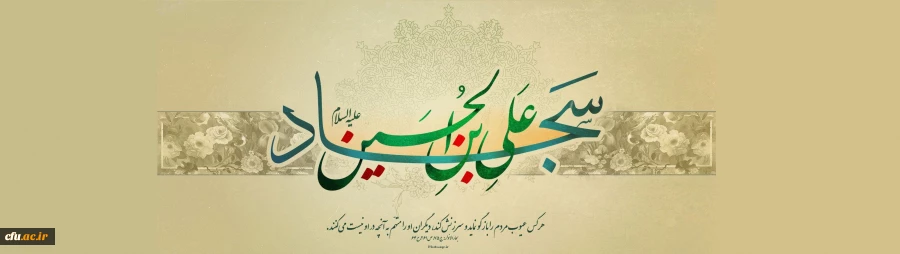 سجاد
علی بن الحسین
علیه السلام
هر کس عیوب مردم را بازگو نماید و سرزنش کند، دیگران او را متهم به آنچه در او نیست می‌کنند.
cfu.ac.ir